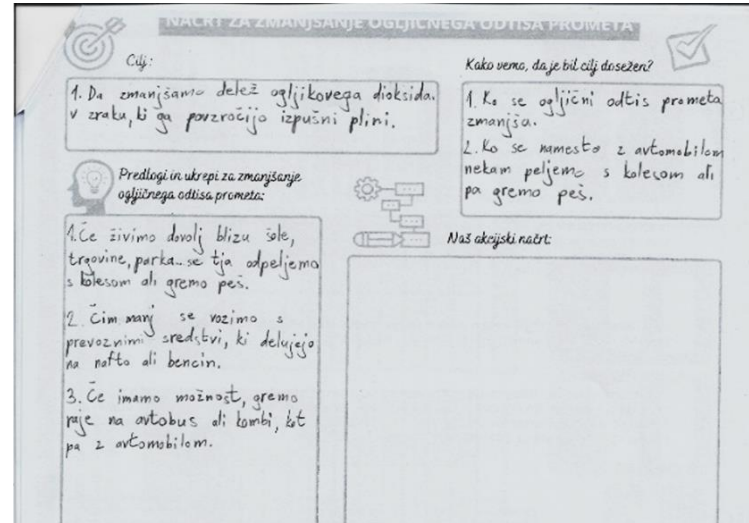 NAČRT ZA ZMANJŠANJE OGLJIČNEGA ODTISA PROMETA
Cilj:
1. Da zmanjšamo delež ogljikovega dioksida
v zraku, ki ga povzročijo izpušni plini.
Kako vemo, da je bil cilj dosežen?
1. Ko se ogljični odtis prometa
zmanjša.
2. Ko se namesto z avtomobilom
nekam peljemo s kolesom ali
pa gremo peš.
Predlogi in ukrepi za zmanjšanje
ogljičnega odtisa prometa:
1. Če živimo dovolj blizu šole,
trgovine, parka... se tja odpeljemo
s kolesom ali gremo peš.
2. Čim manj se vozimo s
prevoznimi sredstvi, ki delujejo
na nafto ali bencin.
3. Če imamo možnost, gremo
raje na avtobus ali kombi, kot
pa z avtomobilom.
Naš akcijski načrt: